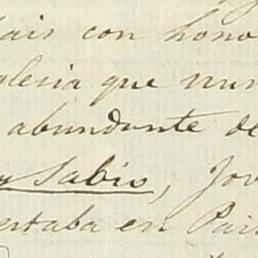 con hono
glesia que nun
abundante de
y Sabio, Jov
ertaba en Pari